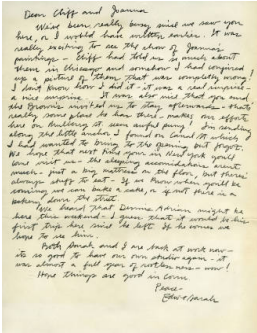 Dear Cliff and Joanna
We've been really busy since we saw you
here, or I would have written earlier. It was
really exciting to see the show of Joanna's
paintings - Cliff had told us so much about
them in Chicago and somehow I had conjured
up a picture of them that was completely wrong!
I don't know how I did it - it was a real surprise -
a nice surprise. It was also nice that you and
the Browns invited us to stay afterwards - that
really some place he has there - makes our efforts
here on building it seem awful puny! I'm sending
along the little anchor I found on Canal St which
I had wanted to bring to the opening but forgot.
We hope that next time you're in New York you'll
come visit us - the sleeping accomodations aren't
much - just a big mattress on the floor, but there's
always stuff to eat - If we know when you'll be
coming we can bake a cake, or if not there is a
bakery down the street.
We heard that Dennis Adrian might be
here this weekend - I guess that it would be his
first trip here since he left. If he comes we
hope to see him.
Both Sarah and I are back at work now -
its so good to have our own studios again - it
was almost a full year of restlessness - wow!
Hope things are good in
Peace -
Ed &amp; Sarah